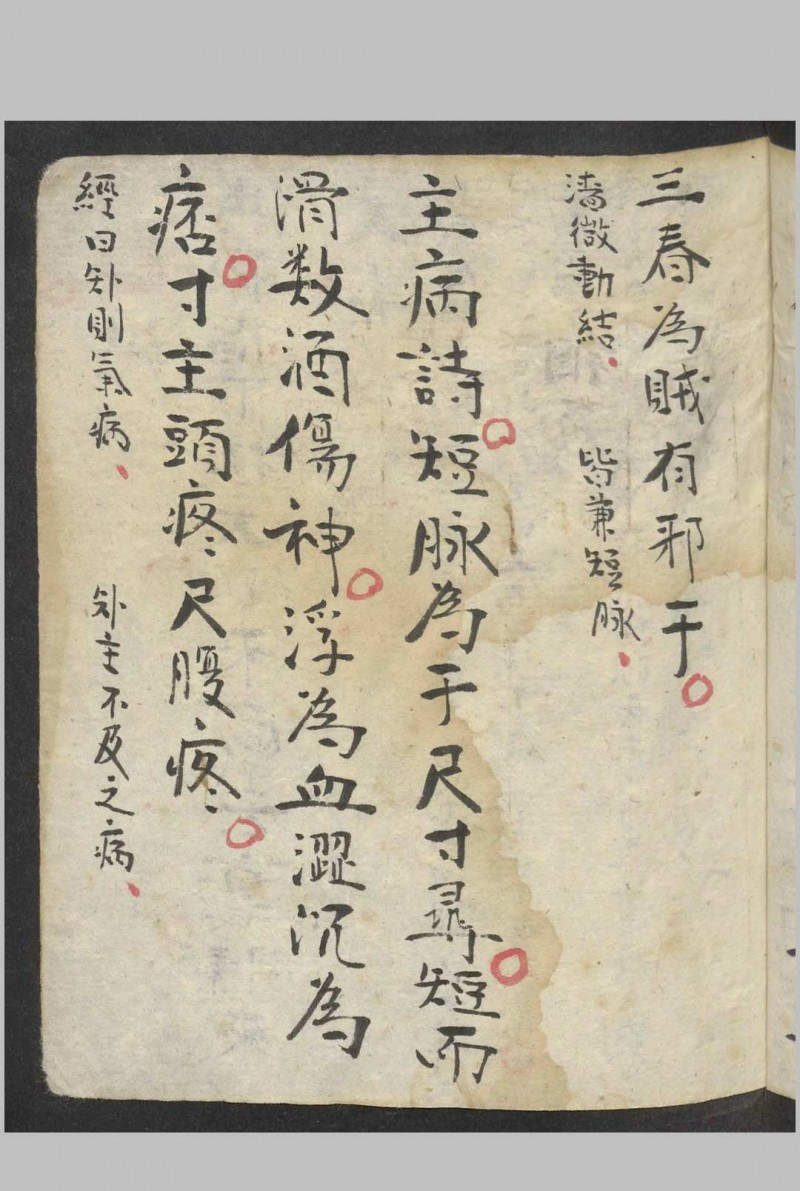 三春為賊有邪干
濇微動結、　皆兼短脉、
主病詩短脉為于尺寸尋短而
滑数酒傷神浮為血澀沉為
痞寸主頭疼尺腹疼
經曰短則氣病、　短主不及之病、